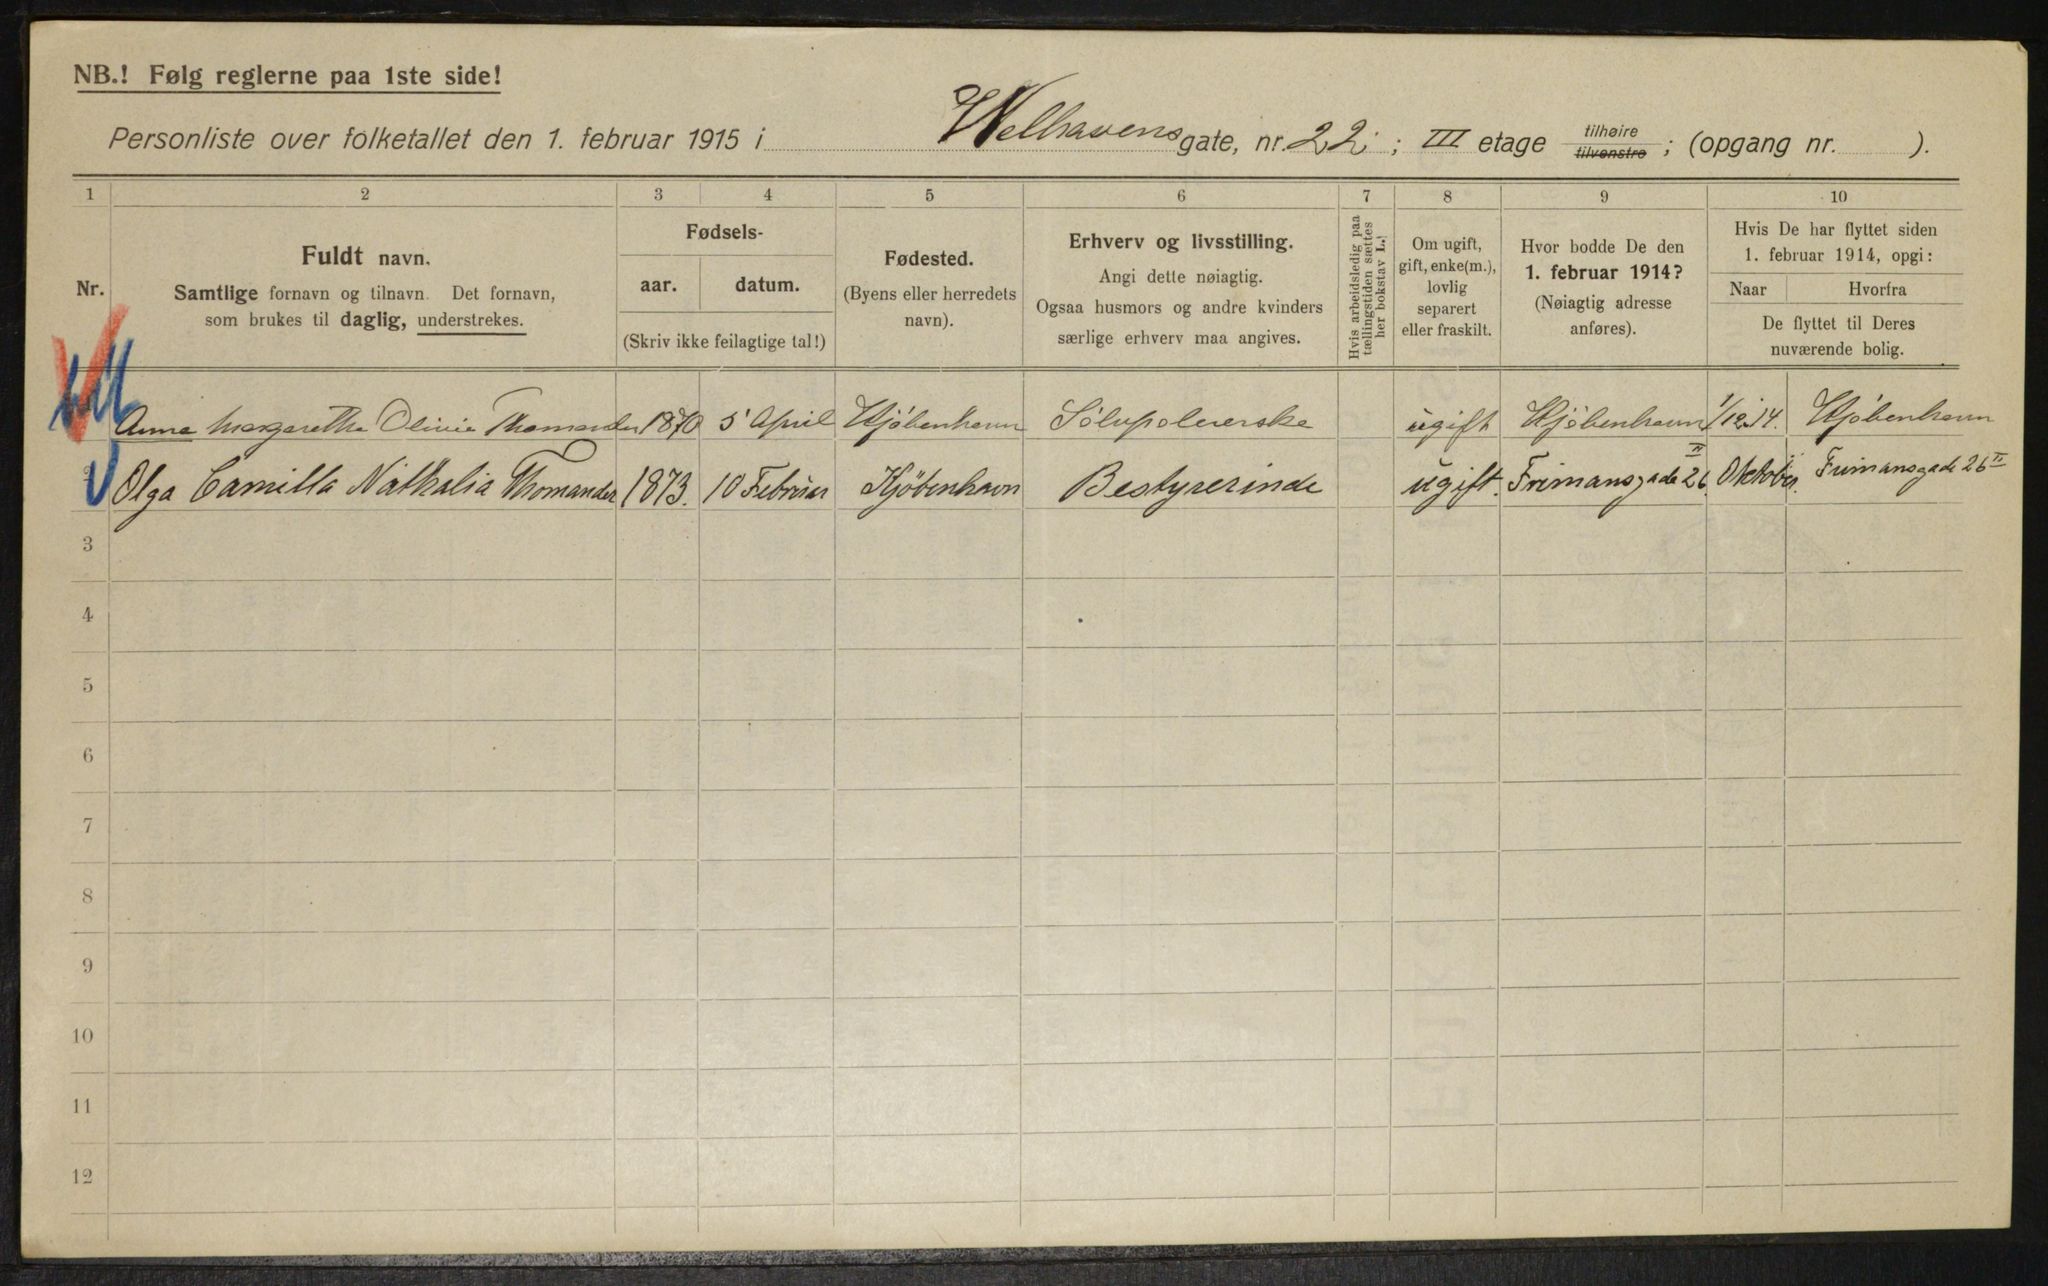 NB.! Følg reglerne paa 1ste side!
Personliste over folketallet den 1. februar 1915 i Welhavens gate, nr. 22; III etage tilhøire tilvenstre; (opgang nr. ).
1 2 3 4 5 6 7 8 9 10
Nr.
Fuldt navn.
Samtlige fornavn og tilnavn. Det fornavn,
som brukes til daglig, understrekes.
Fødsels-
aar. datum.
(Skriv ikke feilagtige tal!)
Fødested.
(Byens eller herredets
navn).
Erhverv og livsstilling.
Angi dette nøiagtig.
Ogsaa husmors og andre kvinders
særlige erhverv maa angives.
Hvis arbeidsledig paa
tællingstiden sættes
her bokstav L.!
Om ugift,
gift, enke(m.),
lovlig
separert
eller fraskilt.
Hvor bodde De den
1. februar 1914?
(Nøiagtig adresse
anføres).
Hvis De har flyttet siden
1. februar 1914, opgi:
Naar Hvorfra
De flyttet til Deres
nuværende bolig.
Anna Margaretha Olivie Thomander 1870 5 April Kjöbenhavn Sölvpolererske ugift Kjöbenhavn 1/12.14. Kjöbenhavn
Olga Camilla Nathalia Thomander 1873. 10 Februar Kjöbenhavn Bestyrerinde ugift. Frimansgade 26 II Oktober. Frimansgade 26 II
3
4
5
6
7
8
9
10
11
12